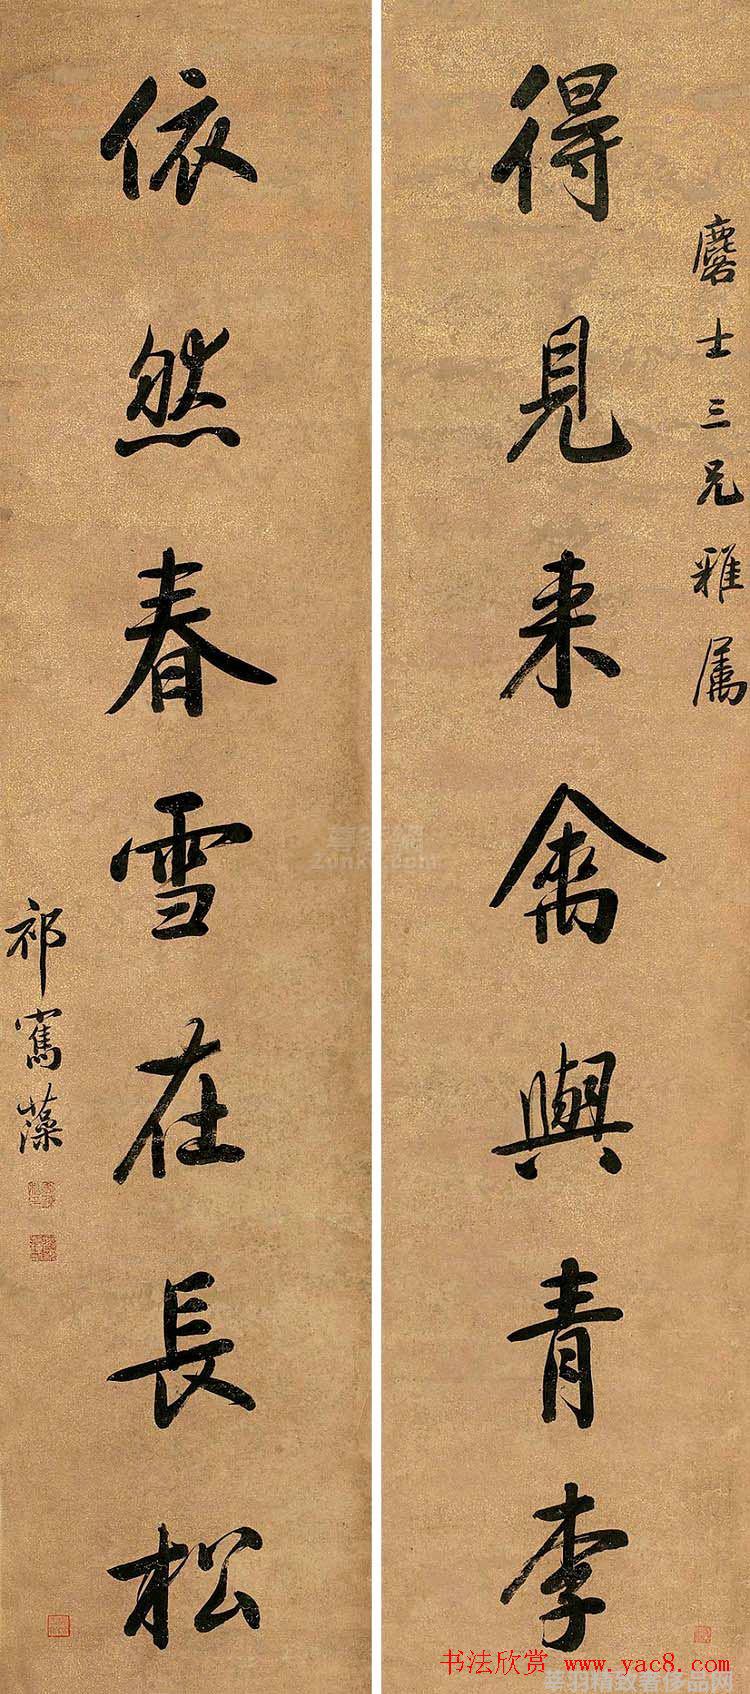 得見来禽與青李
麐士三兄雅属
依然春雪在長松
祁寯藻
书法欣赏 www.yac8.com